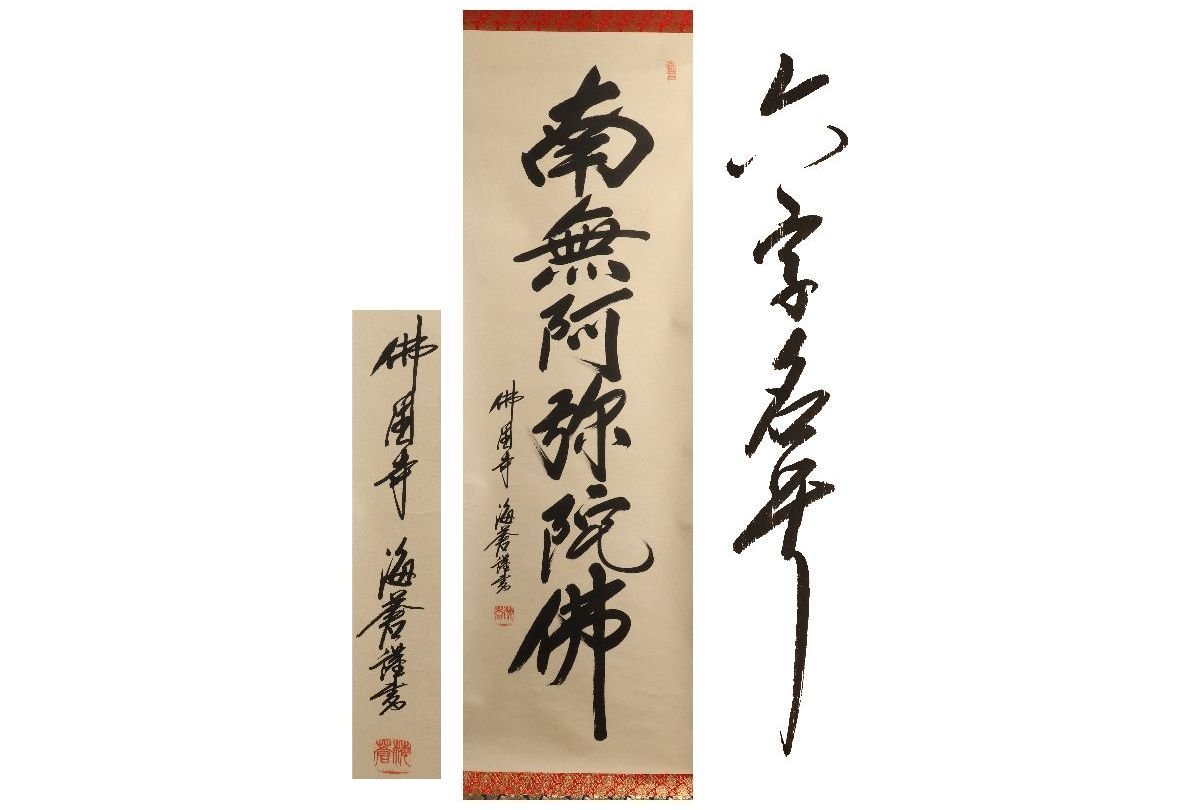 六字名号
南無阿弥陀佛
佛国寺 海蒼謹書
佛国寺 海蒼謹書
海蒼